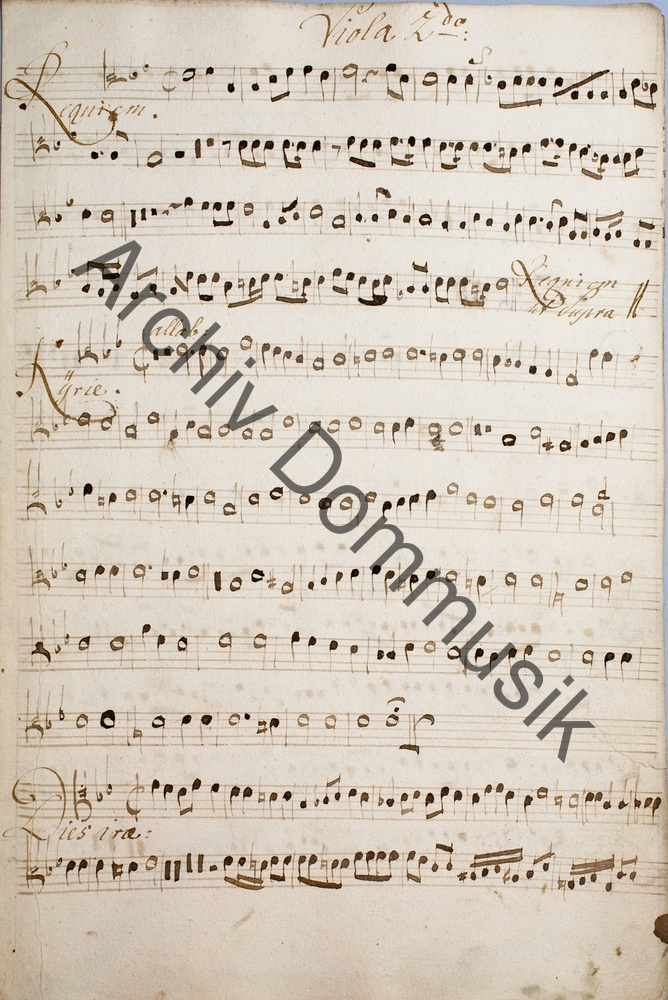 Viola 2do:
Requiem.
Requiem
ut supra
allab
Kyrie.
Dies irae:
Archiv Dommusik